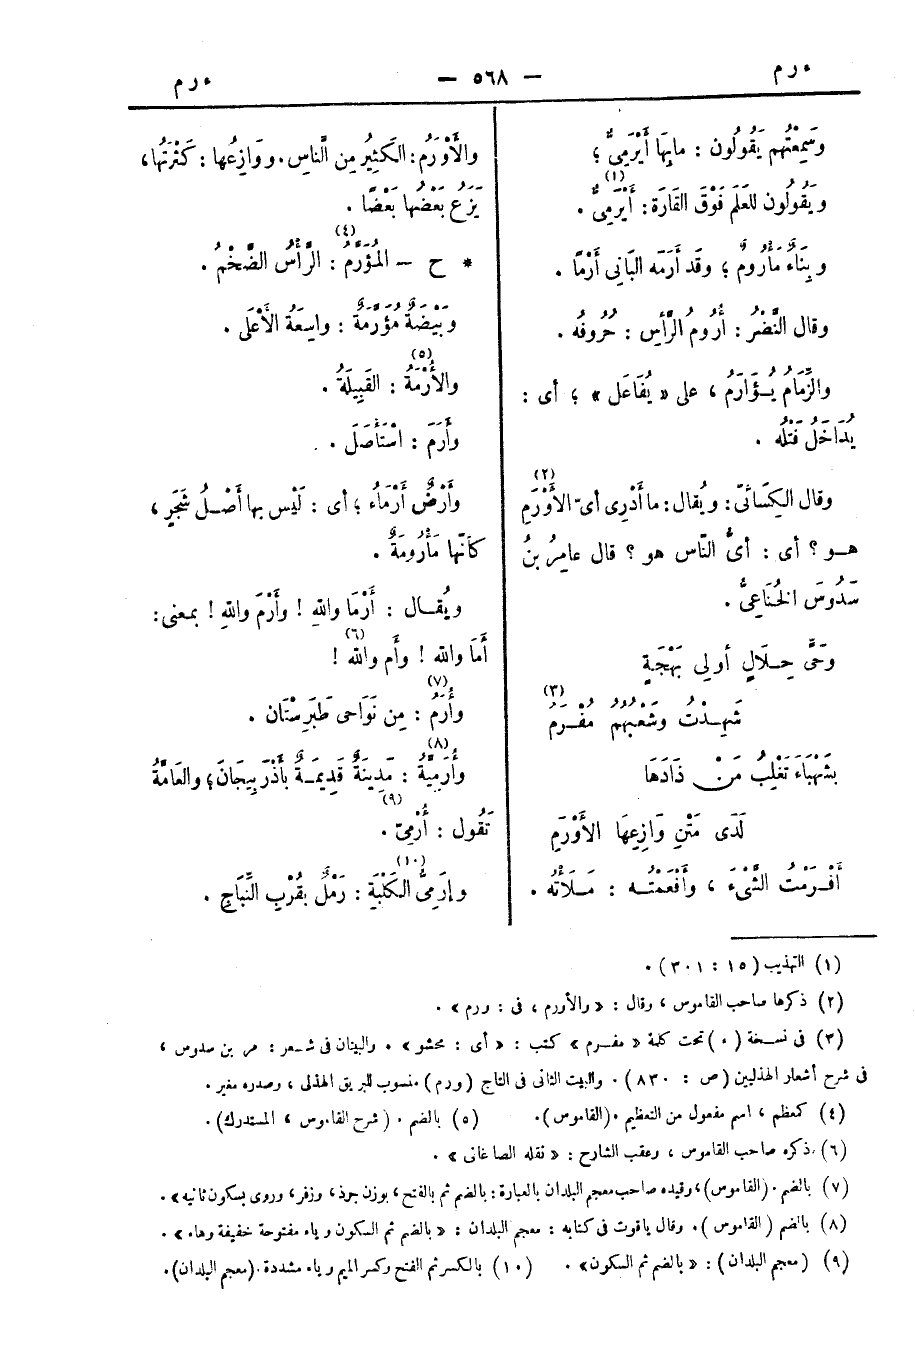 ء ر م
— ٥٦٨ —
ء ر م
وَسَمِعْتُهم يَقُولُون : مابِهَا أَيْرَمِىٌّ ؛
ويَقُولُون للعَلَم فَوْقَ القَارَة : أَيْرَمِىٌّ (١) .
وبِنَاءٌ مَأْرُومٌ ؛ وقَد أَرَمَه البَانِى أَرْمًا .
وقال النَّضْرُ : أُرُومُ الرَّأْسِ : حُرُوفُه .
والزِّمَامُ يُؤَارَمُ ، على « يُفَاعَل » ؛ أى :
يُدَاخَلُ فَتْلُه .
وقال الكِسَائىّ : ويُقال : ما أَدْرِى أىّ الأَوْرَمِ (٢)
هو ؟ أى : أىُّ النَّاس هو ؟ قال عامِرُ بنُ
سَدُوسَ الخُنَاعِىُّ .
وَحَىٍّ حِلَالٍ أولِى بَهْجَةٍ
شَهِدْتُ وشَعْبُهُم مُفْرَمُ (٣)
بشَهْبَاءَ تَغْلِبُ مَنْ ذَادَهَا
لَدَى مَتْنِ وَازِعِهَا الأَوْرَمِ
أَفْرَمْتُ الشَّىْءَ ، وأَفْعَمْتُه : مَلَأْتُه .
والأَوْرَمُ : الكَثِيرُ مِن النَّاسِ . ووَازِعُها : كَثْرَتُها ،
يَزَعُ بَعْضُها بَعْضًا .
* ح — المُؤَرَّمُ (٤) : الرَّأْسُ الضَّخْمُ .
وبَيْضَةٌ مُؤَرَّمَةٌ : واسِعَةُ الأَعْلَى .
والأُرْمَةُ (٥) : القَبِيلَةُ .
وأَرَمَ : اسْتَأْصَلَ .
وأَرْضٌ أَرْمَاءُ ؛ أى : لَيْس بها أَصْلُ شَجَرٍ ،
كأنّها مَأْرُومَةٌ .
ويُقال : أَرْمَا واللهِ ! وأَرْمَ واللهِ ! بمعنى :
أَمَا والله ! وأم والله (٦) !
وأُرَمُ (٧) : مِن نَوَاحِى طَبَرِسْتَان .
وأُرْمِيَّةُ (٨) : مَدِينَةٌ قَدِيمَةٌ بأَذْرَبِيجَان ؛ والعَامَّةُ
تَقُول : أُرْمِىّ (٩) .
وإرَمِىُّ الكَلْبَةِ (١٠) : رَمْلٌ بقُرْبِ النِّبَاجِ .
(١) التهذيب (١٥ : ٣٠١) .
(٢) ذكرها صاحب القاموس ، وقال : « والأورم ، فى : ورم » .
(٣) فى نسخة (ء) تحت كلمة « مفرم » كتب : « أى : محشو » . والبيتان فى شعر : مر بن سدوس ،
فى شرح أشعار الهذليين (ص : ٨٣٠) . والبيت الثانى فى التاج (ورم) منسوب للبريق الهذلى ، وصدره مغير .
(٤) كمعظم ، اسم مفعول من التعظيم . (القاموس) . (٥) بالضم . (شرح القاموس ، المستدرك) .
(٦) ذكره صاحب القاموس ، وعقب الشارح : « نقله الصاغانى » .
(٧) بالضم . (القاموس) ، وقيده صاحب معجم البلدان بالعبارة : بالضم ثم بالفتح ، بوزن جرذ ، وزفر ، وروى بسكون ثانيه » .
(٨) بالضم (القاموس) . وقال ياقوت فى كتابه : معجم البلدان : « بالضم ثم السكون وياء مفتوحة خفيفة وهاء » .
(٩) (معجم البلدان) : « بالضم ثم السكون» . (١٠) بالكسر ثم الفتح وكسر الميم وياء مشددة . (معجم البلدان) .